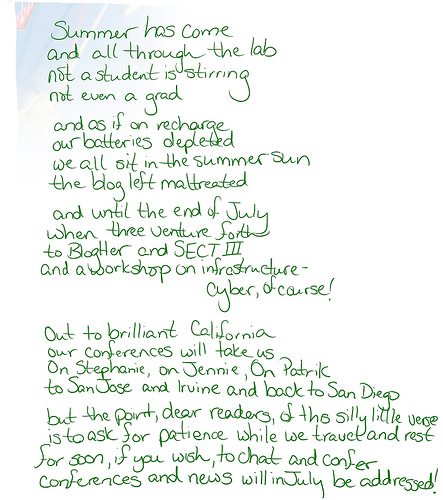 Summer has come
and all through the lab
not a student is stirring
not even a grad
and as if on recharge
our batteries depleted
we all sit in the summer sun
the blog left maltreated
and until the end of July
when three venture forth
to BlogHer and SECT III
and a workshop on infrastructure-
Cyber, of course!
Out to brilliant California
our conferences will take us
On Stephanie, on Jennie, On Patrik
to San Jose and Irvine and back to San Diego
but the point, dear readers, of this silly little verse
is to ask for patience while we travel and rest
for soon, if you wish, to chat and confer
conferences and news will in July be addressed!